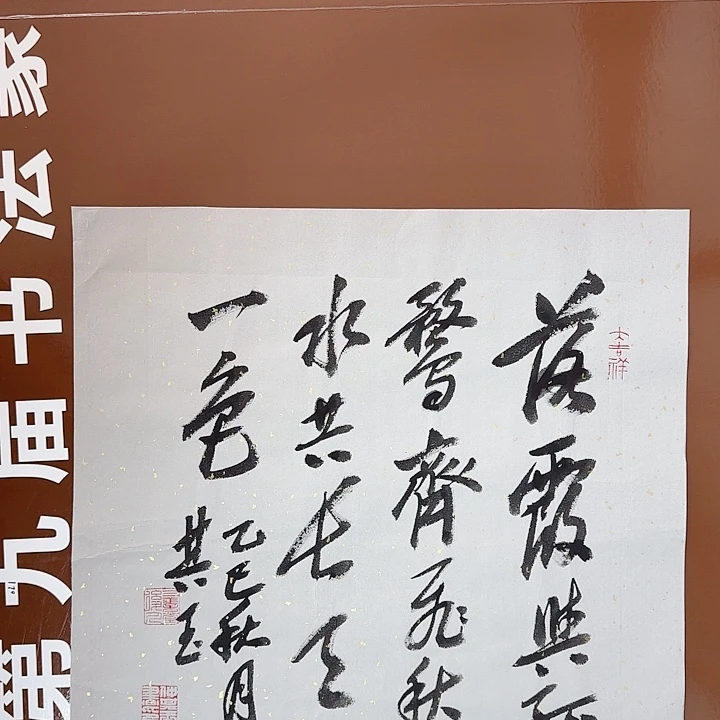 落霞與孤
鶩齊飛秋
水共長天
一色
乙巳秋月
其玉
大吉祥
第九届书法家